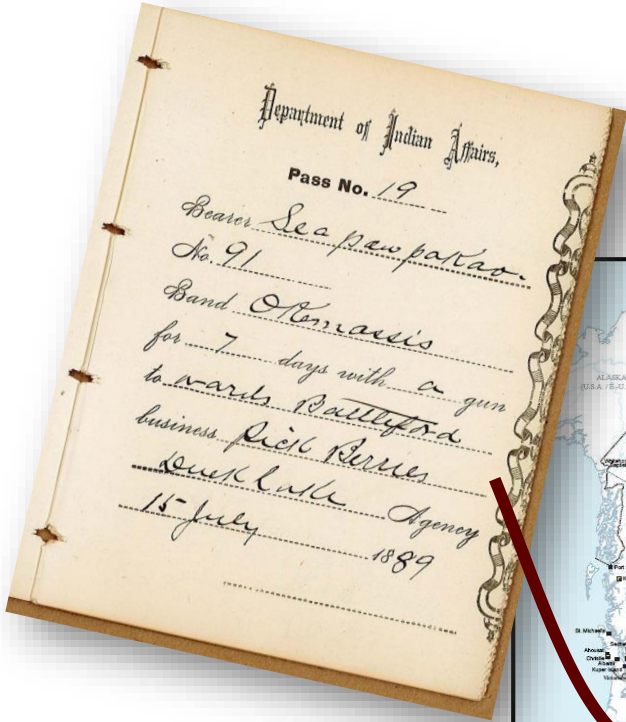 Department of Indian Affairs,
Pass No. 19
Bearer Sea paw pakao.
No. 91
Band Okemassis
for 7 days with a gun
to wards Battleford
business Pick Berries
Duck Lake Agency
15 July 1889
ALASKA
St. Michael's
Ahousat
Christie
Alberni
Kuper Island